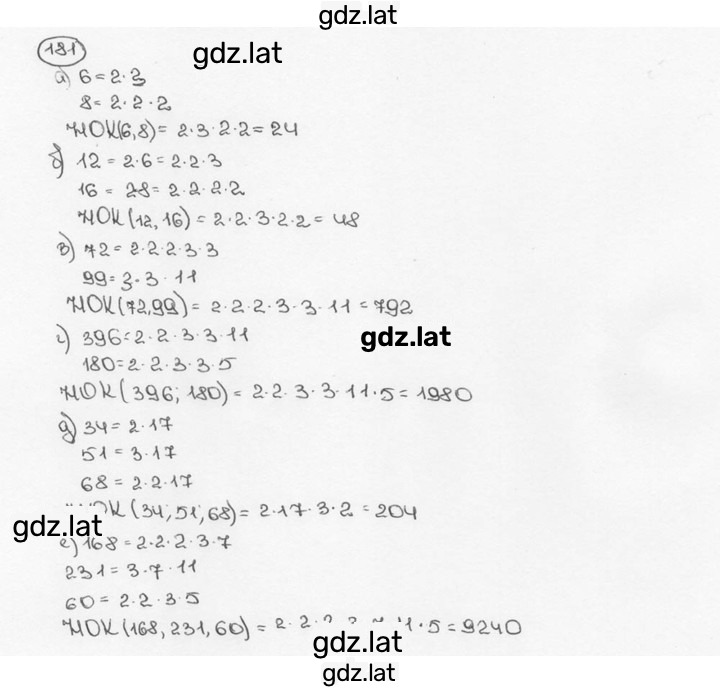 gdz.lat
181
gdz.lat
а) 6 = 2·3
8 = 2·2·2
НОК(6,8) = 2·3·2·2 = 24
б) 12 = 2·6 = 2·2·3
16 = 2·8 = 2·2·2·2
НОК(12, 16) = 2·2·3·2·2 = 48
в) 72 = 2·2·2·3·3
99 = 3·3·11
НОК(72,99) = 2·2·2·3·3·11 = 792
г) 396 = 2·2·3·3·11
gdz.lat
180 = 2·2·3·3·5
НОК(396; 180) = 2·2·3·3·11·5 = 1980
д) 34 = 2·17
51 = 3·17
68 = 2·2·17
НОК(34; 51; 68) = 2·17·3·2 = 204
gdz.lat
е) 168 = 2·2·2·3·7
231 = 3·7·11
60 = 2·2·3·5
НОК(168, 231, 60) = 2·2· ·5 = 9240
gdz.lat
gdz.lat